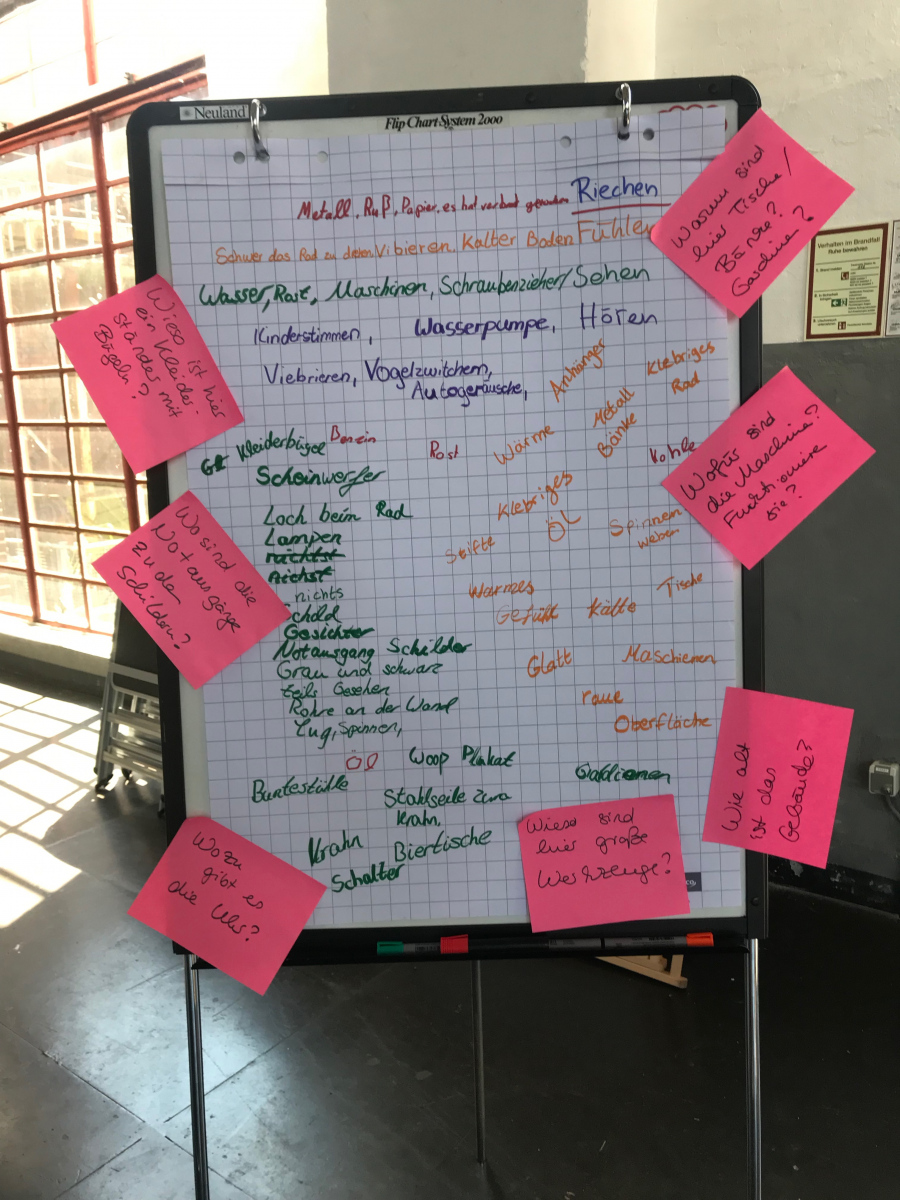 Neuland
Flip Chart System 2000
Metall, Ruß, Papier, es hat verbrat Riechen
Schwer das Rad zu drehen, Vibieren, Kalter Boden Fühlen
Wasser, Rost, Maschinen, Schraubenzieher/ Sehen
Kinderstimmen, Wasserpumpe, Hören
Viebrieren, Vogelzwitchern,
Autogeräusche,
Anhänger
Klebriges
Rad
Metall
Bänke
Wärme
Kleiderbügel
Benzin
Rost
Kohle
Scheinwerfer
Klebriges
ÖL
Loch beim Rad
Lampen
Stifte
Spinnen
weben
nichts
Schild
Gesichter
Notausgang Schilder
Grau und schwarz
teils Gesehen
Rohre an der Wand
Zug, Spinnen,
Warmes
Gefühl
Kälte
Tische
Glatt
Maschienen
raue
Oberfläche
Öl
Woop Plakat
Gardienen
Buntestühle
Stahlseile zum
Krahn,
Krahn
Biertische
Schalter
Warum sind
hier Tische/
Bänke?
Gardine?
Wieso ist hier
ein Kleider-
ständer mit
Bügeln?
Wofür sind
die Maschine?
Funktioniere
sie?
Wo sind die
Notausgänge
zu den
Schildern?
Wie alt
ist das
Gebäude?
Wozu
gibt es
die Uhr?
Wieso sind
hier große
Werkzeuge?
Verhalten im Brandfall
Ruhe bewahren